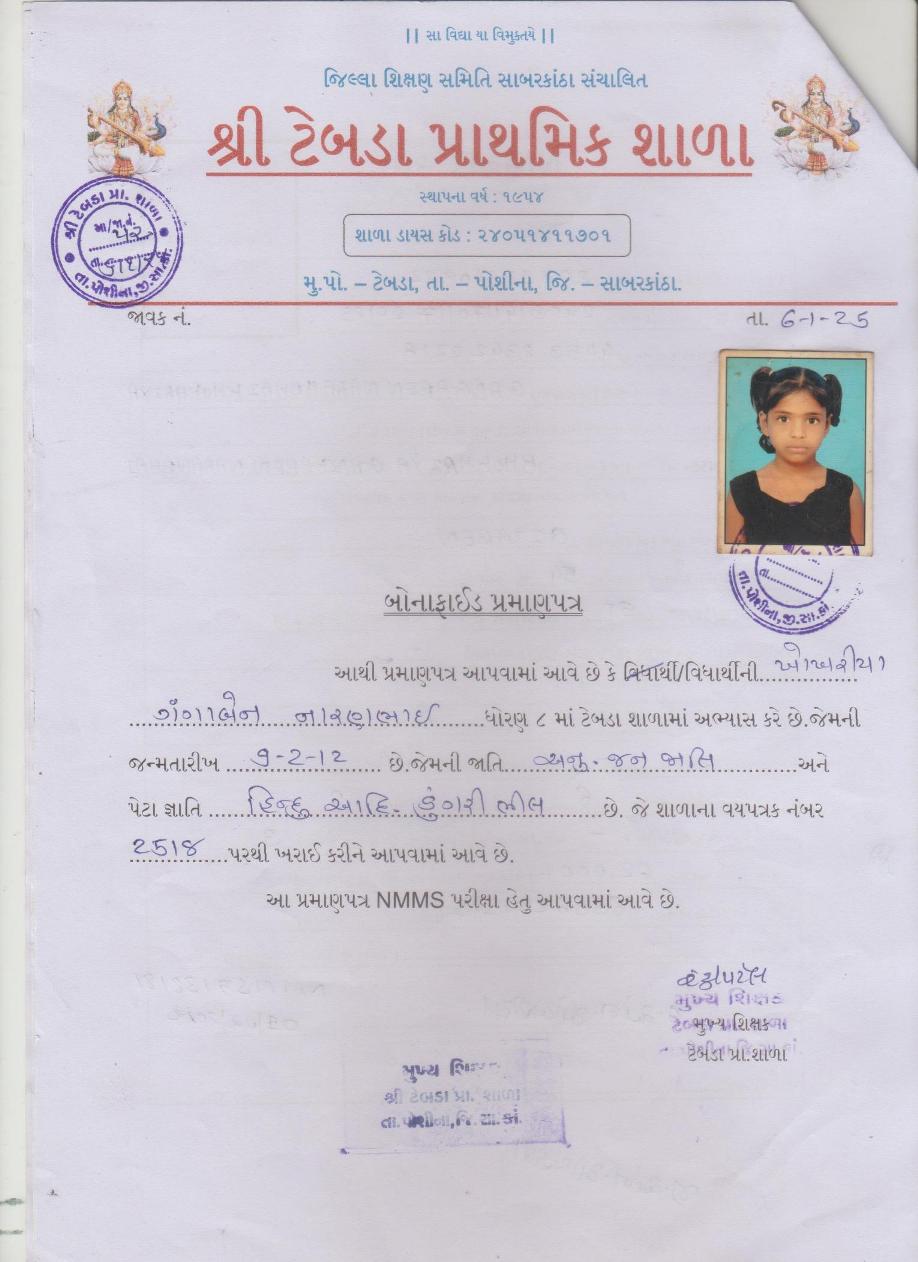 || સા વિદ્યા યા વિમુક્તયે ||
જિલ્લા શિક્ષણ સમિતિ સાબરકાંઠા સંચાલિત
શ્રી ટેબડા પ્રાથમિક શાળા
સ્થાપના વર્ષ : ૧૯૫૪
શાળા ડાયસ કોડ : ૨૪૦૫૧૪૧૧૭૦૧
મુ.પો. – ટેબડા, તા. – પોશીના, જિ. – સાબરકાંઠા.
શ્રી ટેબડા પ્રા. શાળા
આ/જા.નં.
તા.
તા.પોશીના,જી.સા.કાં.
જાવક નં.
તા. 6-1-25
આ/જા.નં.
તા.
તા.પોશીના,જી.સા.કાં.
બોનાફાઈડ પ્રમાણપત્ર
આથી પ્રમાણપત્ર આપવામાં આવે છે કે વિધાર્થી/વિધાર્થીની ખોખરીયા
ગંગાબેન નારણભાઈ ધોરણ ૮ માં ટેબડા શાળામાં અભ્યાસ કરે છે.જેમની
જન્મતારીખ 9-2-12 છે.જેમની જાતિ અનુ. જન જાતિ અને
પેટા જ્ઞાતિ હિન્દુ આદિ. ડુંગરી ભીલ છે. જે શાળાના વયપત્રક નંબર
2518 પરથી ખરાઈ કરીને આપવામાં આવે છે.
આ પ્રમાણપત્ર NMMS પરીક્ષા હેતુ આપવામાં આવે છે.
મુખ્ય શિક્ષક
મુખ્ય શિક્ષક
ટેબડા પ્રા.શાળા
મુખ્ય શિક્ષક
શ્રી ટેબડા પ્રા. શાળા
તા.પોશીના,જિ.સા.કાં.